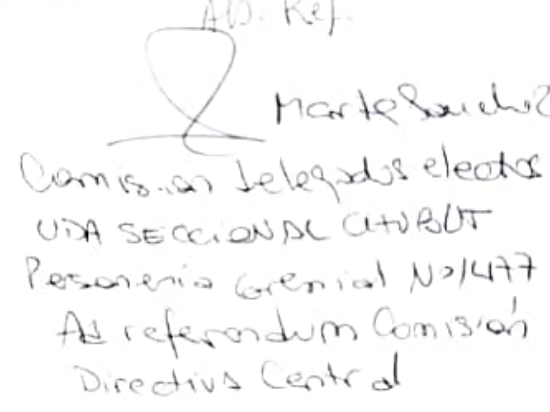 AD. Ref.
Marta Sanchez
Comision delegados electos
UDA SECCIONAL CHUBUT
Pesoneria Gremial Nº 1477
Ad referendum Comisión
Directiva Central